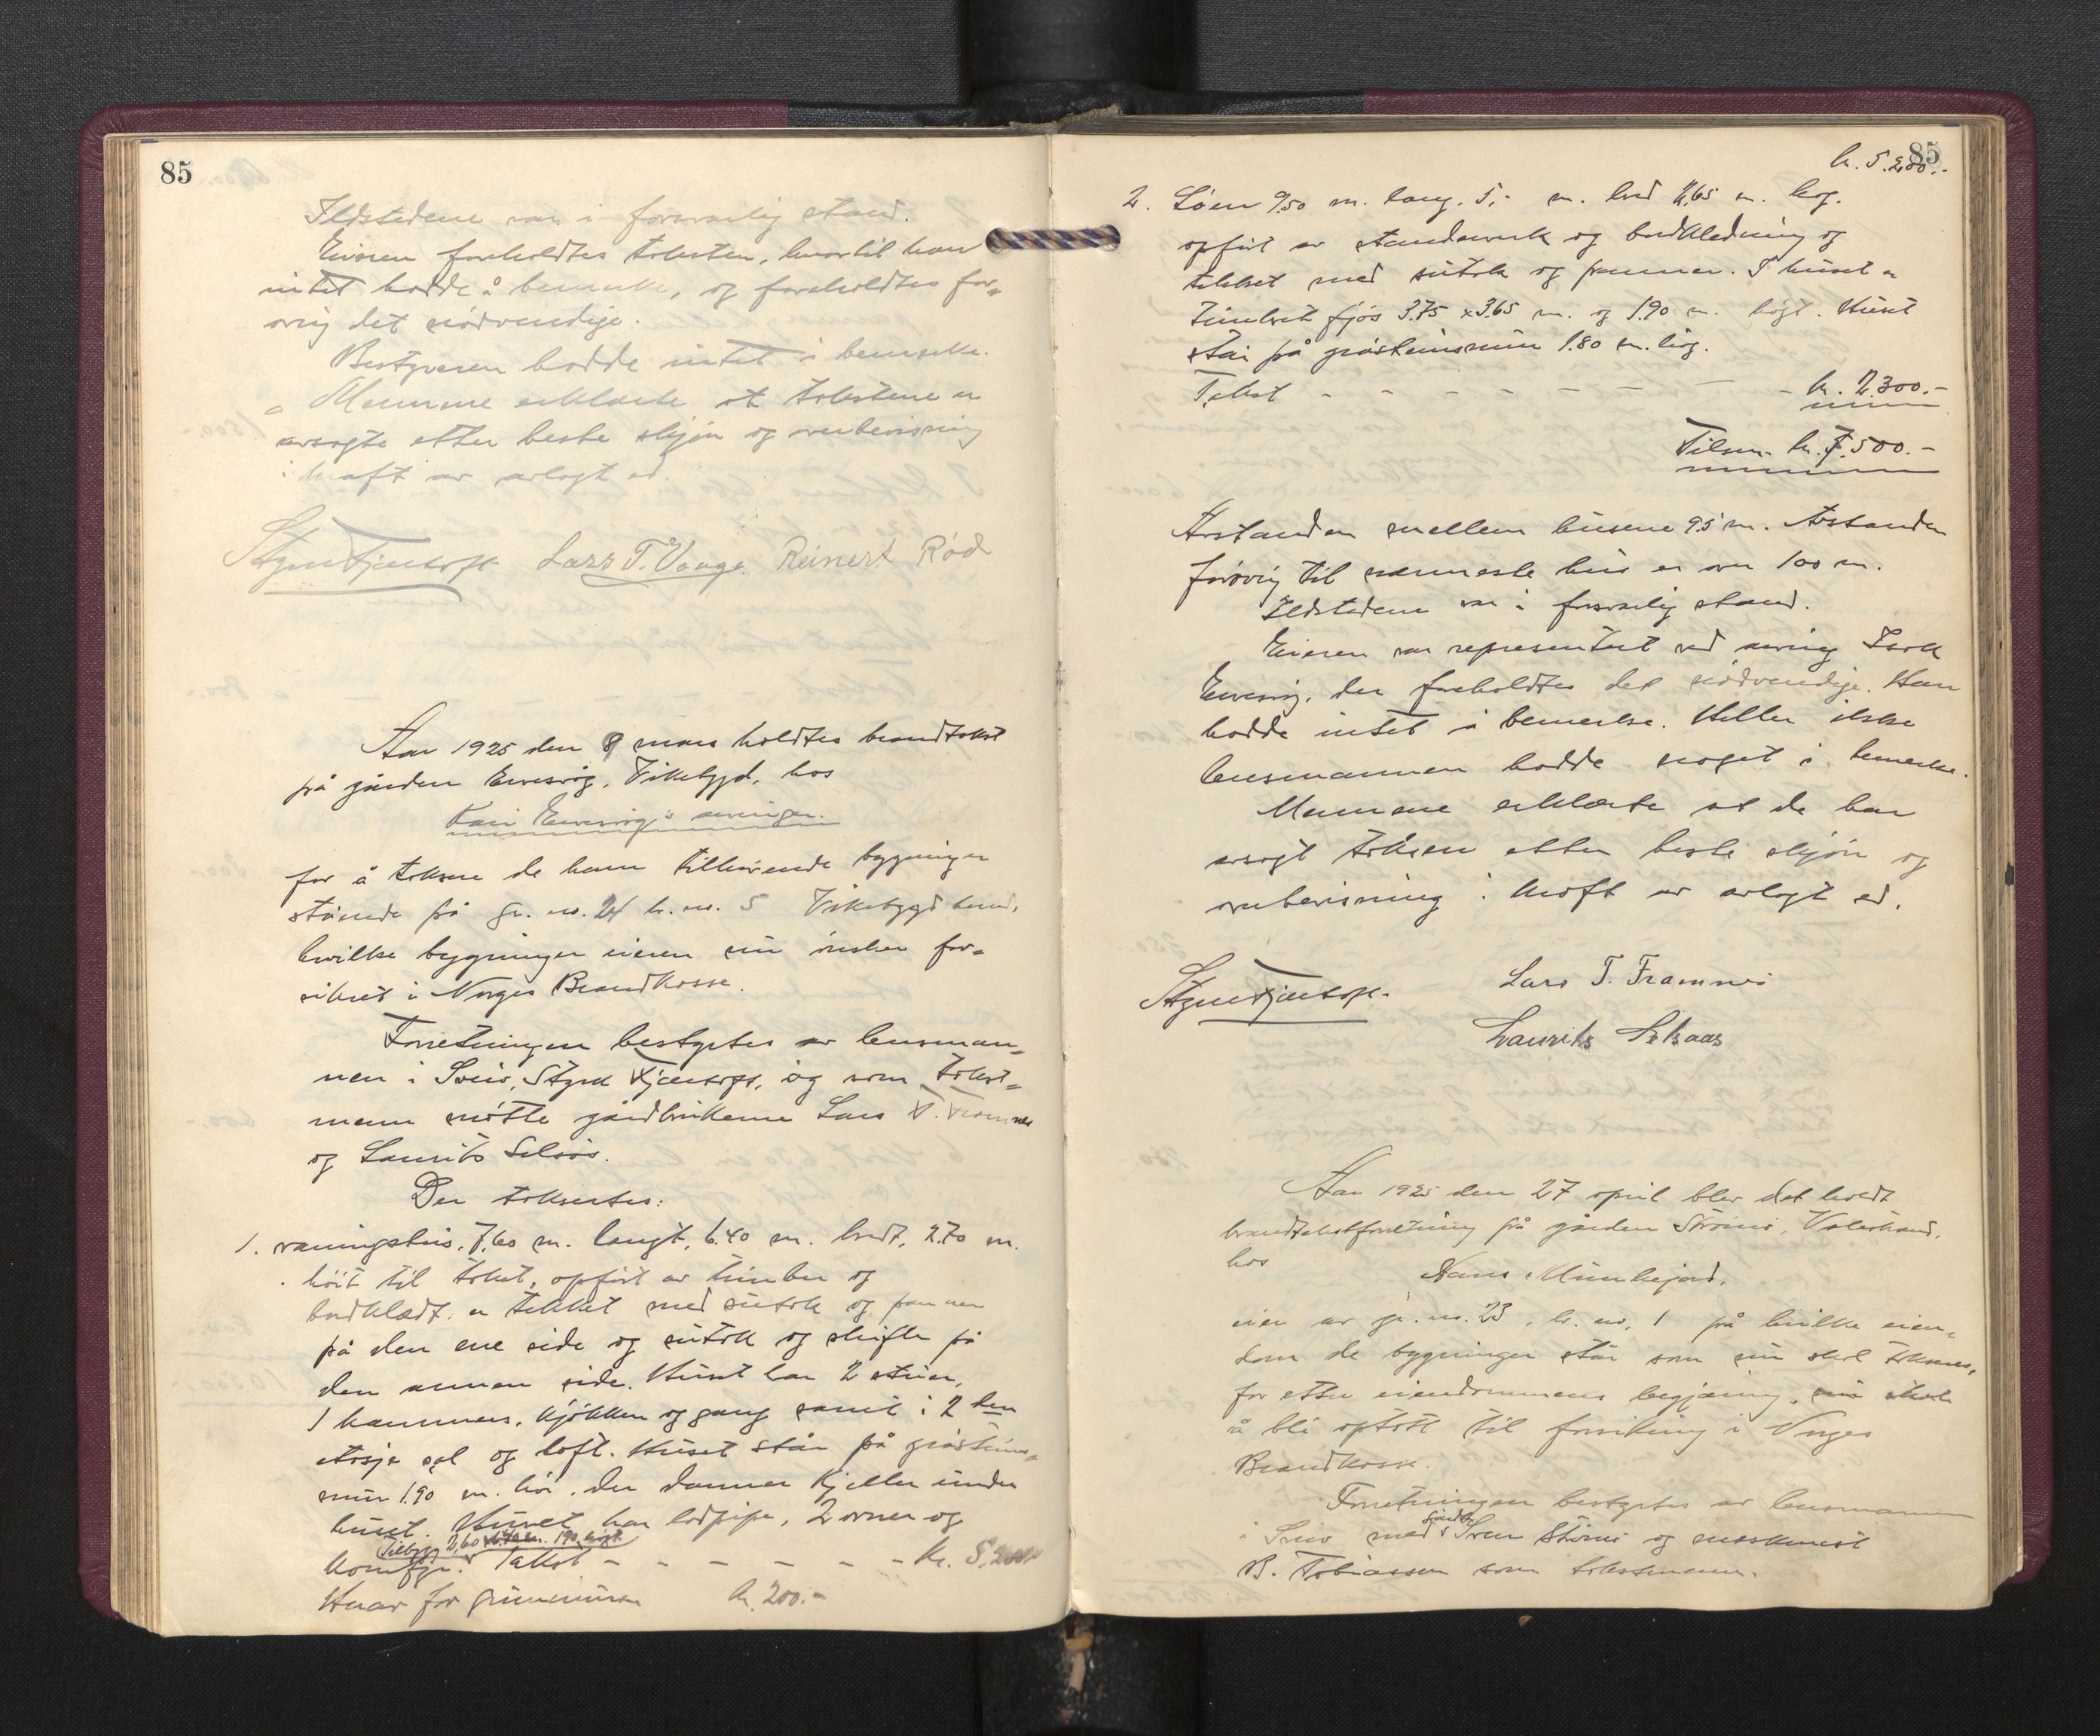 85
Ildstedene var i forsvarlig stand.
Eieren foreholdtes taksten, hvortil han
intet hadde å bemerke, og foreholdtes for-
øvrig det nødvendige.
Bestyreren hadde intet å bemerke.
Mennene erklærte at takstene er
avsagte etter beste skjøn og overbevisning
i kraft av avlagt ed.
Lars T. Vaage. Reinert Röd
Aar 1925 den 8 mars holdtes brandtakst
på gården Emesvåg, Vikebygd, hos
Kari Emesvåg's arvinger.
for å taksere de ham tilhørende bygninger
stående på gr. no. 24 br. no. 5 Vikebygd herred,
hvilke bygninger eieren nu ønsker for-
sikret i Norges Brandkasse.
Forretningen bestyrtes av lensman-
nen i Sveio, Styrk Fjærtoft, og som takst-
menn møtte gårdbrukerne Lars T. Framnes
og Laurits Selsås.
Der taksertes:
1. vaaningshus, 7,60 m. langt, 6.40 m. bredt, 2.70 m.
höit til taket, opført av timber og
bordklædt, er tekket med sutak og panner
på den ene side og sutak og skifer på
den annen side. Huset har 2 stuer,
1 kammers, kjøkken og gang samt i 2den
etasje sal og loft. Huset står på gråsteins-
mur 1.90 m. høi, der danner kjeller under
huset. Huset har lodpipe, 2 ovner og
Tilbygg 2,60 190 høgt
komfyr. Takst - - - - - - - Kr. 5,200,-
Herav for grunnmuren kr. 200.-
85
kr. 5.200.-
2. Löen 9,50 m. lang. 5,- m. bred 2,65 m. høg.
opført av standaverk og bordkledning og
tekket med sutak og panner. I huset er
timbret fjøs 3.75 x 3.65 m. og 1.90 m. høgt. Huset
står på gråsteinsmur 1.80 m. høg.
Takst - - - - - - - - kr. 2.300.-
Tilsm. kr. 7.500.-
Avstanden mellem husene 95 m. Avstanden
forøvrig til nærmeste hus er over 100 m.
Ildstedene var i forsvarlig stand.
Eieren var representert ved arving Isak
Emesvåg, der foreholdtes det nødvendige. Han
hadde intet å bemerke. Heller ikke
lensmannen hadde noget å bemerke.
Mennene erklærte at de har
avsagt taksten etter beste skjøn og
overbevisning i kraft av avlagt ed.
Lars T. Framnes
Laurits Selsaas
Aar 1925 den 27 april blev det holdt
brandtakstforretning på gården Straumø, Valestrand,
hos
Hans Munkejord,
eier av gr. no. 23, br. no. 1 på hvilke eien-
dom de bygninger står som nu skal takseres,
for etter eiendommens begjæring, nu skal
å bli optatt til forsikring i Norges
Brandkasse.
Forretningen bestyrtes av lensmannen
i Sveio med Sven og maskinist
B. Tobiassen som takstmenn.